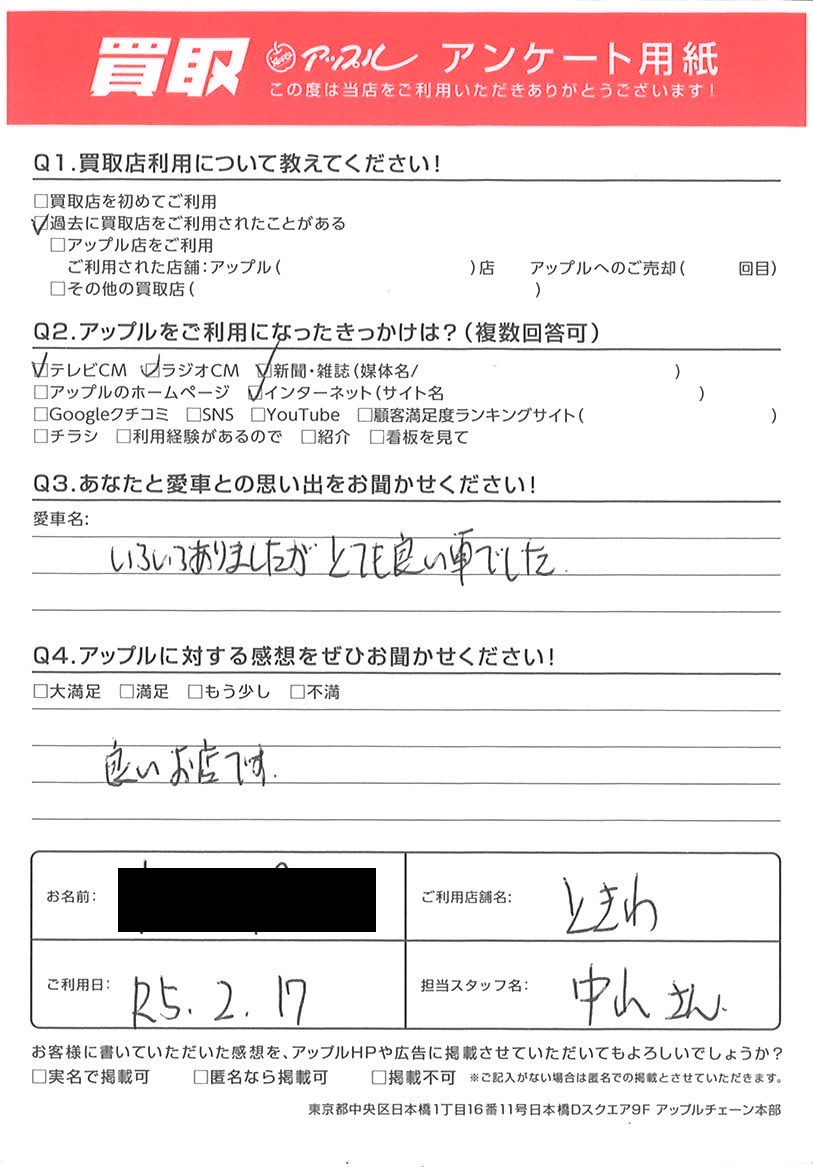 買取 アップル アンケート用紙
この度は当店をご利用いただきありがとうございます!
Q1.買取店利用について教えてください!
□買取店を初めてご利用
☑過去に買取店をご利用されたことがある
□アップル店をご利用
ご利用された店舗:アップル( )店 アップルへのご売却( 回目)
□その他の買取店( )
Q2.アップルをご利用になったきっかけは?(複数回答可)
☑テレビCM ☑ラジオCM ☑新聞・雑誌(媒体名/ )
□アップルのホームページ ☑インターネット(サイト名 )
□Googleクチコミ □SNS □YouTube □顧客満足度ランキングサイト( )
□チラシ □利用経験があるので □紹介 □看板を見て
Q3.あなたと愛車との思い出をお聞かせください!
愛車名:
いろいろありましたが とても良い車でした.
Q4.アップルに対する感想をぜひお聞かせください!
□大満足 □満足 □もう少し □不満
良いお店です.
お名前:
ご利用店舗名: ときわ
ご利用日: R5.2.17
担当スタッフ名: 中山さん
お客様に書いていただいた感想を、アップルHPや広告に掲載させていただいてもよろしいでしょうか?
□実名で掲載可 □匿名なら掲載可 □掲載不可 ※ご記入がない場合は匿名での掲載とさせていただきます。
東京都中央区日本橋1丁目16番11号日本橋Dスクエア9F アップルチェーン本部